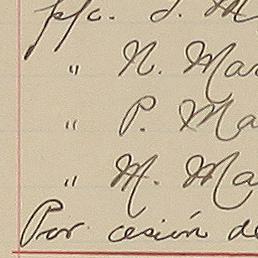 p/c. J. M
" N. Mar
" P. Ma
" M. Ma
Por cesión de